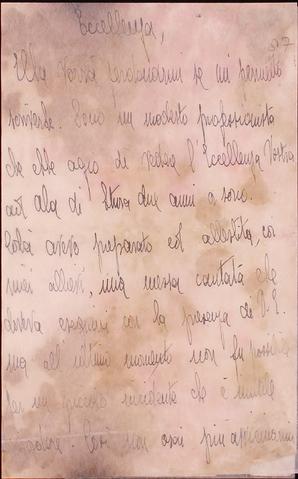 Eccellenza,
Ella vorrà perdonarmi se mi permetto
scriverle. Sono un modesto professionista
che ebbe agio di vedere l'Eccellenza Vostra
ad Ala di Stura due anni or sono.
Colà avevo preparato ed allestita, coi
miei allievi, una messa cantata che
doveva eseguirsi con la presenza di V. E.
ma all'ultimo momento non fu possibile
per un piccolo incidente che è inutile
Così non osai più